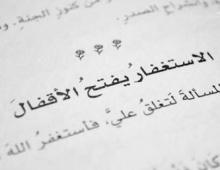 من كنوز الجنة، و
وانشراح الصدر.
الاستغفار يُفتحُ الأقفالَ
المسألة لتغلقُ عليَّ، فأستغفرُ اللهَ